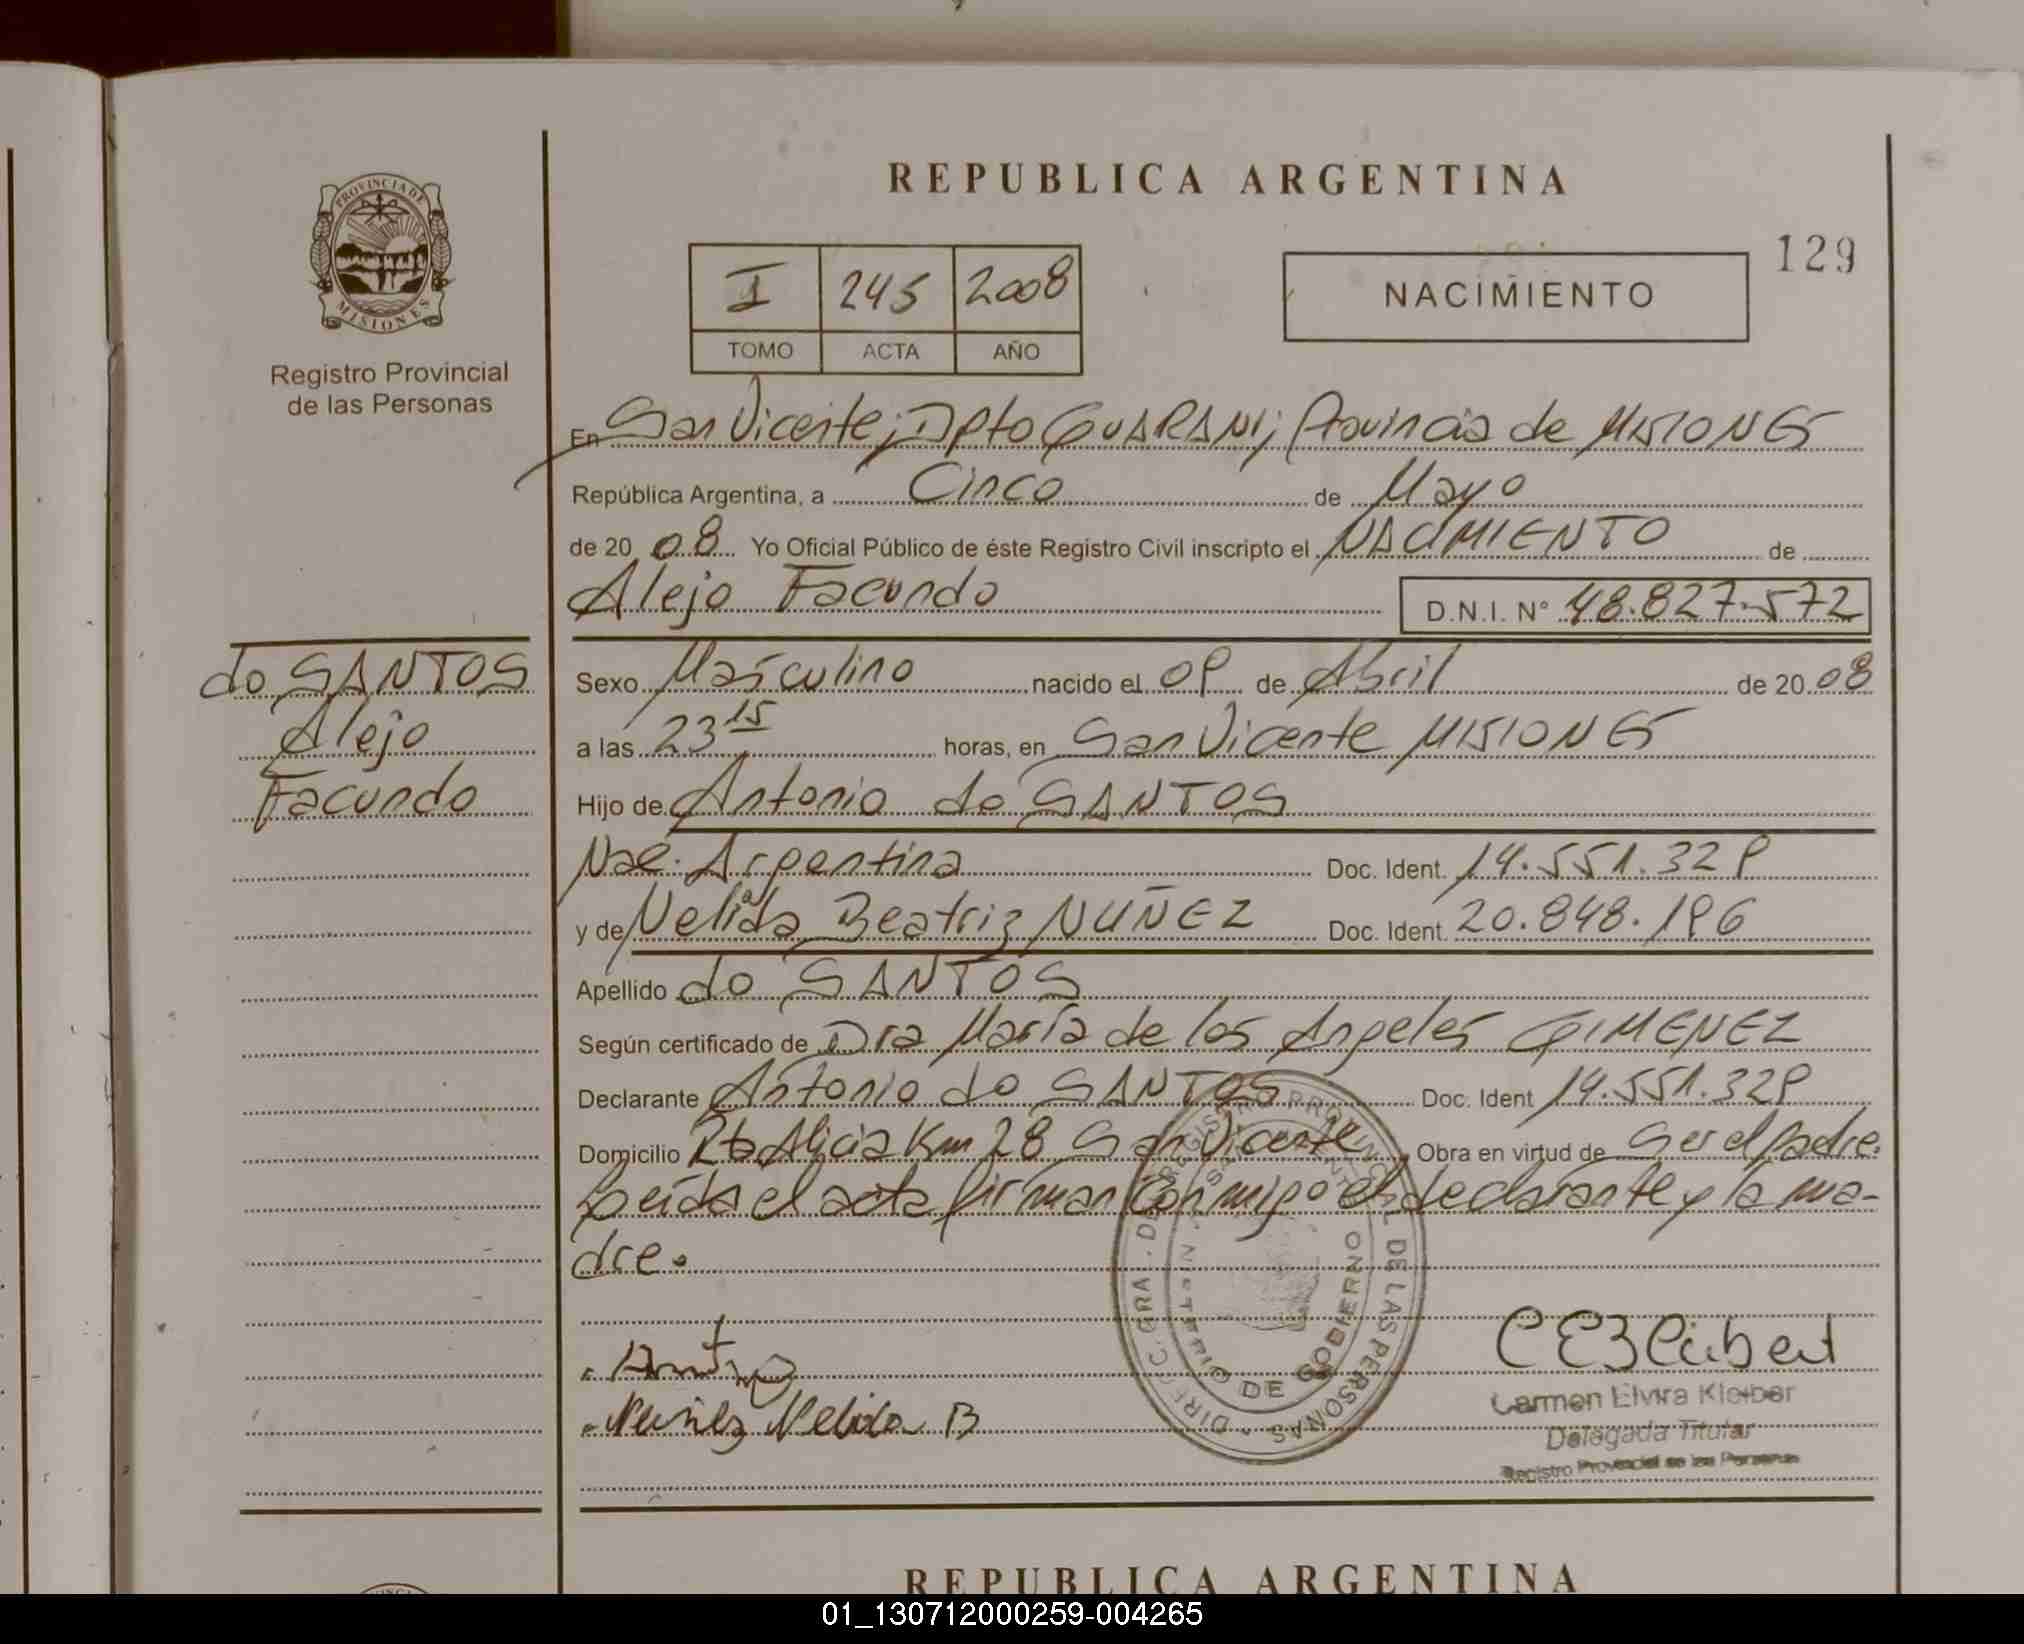 REPUBLICA ARGENTINA
129
PROVINCIA DE MISIONES
Registro Provincial
de las Personas
I 245 2008
TOMO ACTA AÑO
NACIMIENTO
En San Vicente; Dpto GUARANI; Provincia de MISIONES
República Argentina, a Cinco de Mayo
de 20 08 Yo Oficial Público de éste Registro Civil inscripto el NACIMIENTO de
Alejo Facundo D.N.I. N° 48.827.572
do SANTOS
Alejo
Facundo
Sexo Masculino nacido el 09 de Abril de 20 08
a las 23 15 horas, en San Vicente MISIONES
Hijo de Antonio do SANTOS
Nac. Argentina Doc. Ident. 14.551.329
y de Nelida Beatriz NUÑEZ Doc. Ident. 20.848.196
Apellido do SANTOS
Según certificado de Dra María de los Angeles GIMENEZ
Declarante Antonio do SANTOS Doc. Ident 14.551.329
Domicilio Pto Alicia Km 28 San Vicente Obra en virtud de Ser el padre.
Leída el acta firman conmigo el declarante y la ma-
dre.
DIRECC. GRAL. DE REGISTRO PROVINCIAL DE LAS PERSONAS
MINISTERIO DE GOBIERNO
SAN VICENTE
Nuñez Nelida B
Carmen Elvira Kleiber
Delegada Titular
Registro Provincial de las Personas
REPUBLICA ARGENTINA
01_130712000259-004265